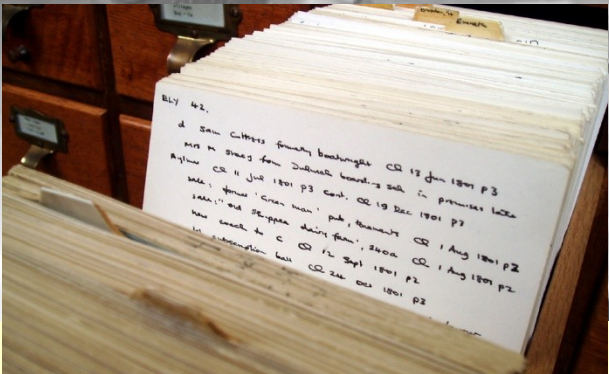 Emneth
ELY 42.
d Sam Cutters formerly boatwright CC 13 Jun 1801 p3
Mrs M from Dulwich boarding sch in premises late
CC 11 Jul 1801 p3 Cont. CC 19 Dec 1801 p3
sale: former 'Green man' pub, tenements CC 1 Aug 1801 p2
sale: "old dairy farm", 340a CC 1 Aug 1801 p2
new coach to C CC 12 Sept 1801 p2
subscription ball CC 24 Oct 1801 p3